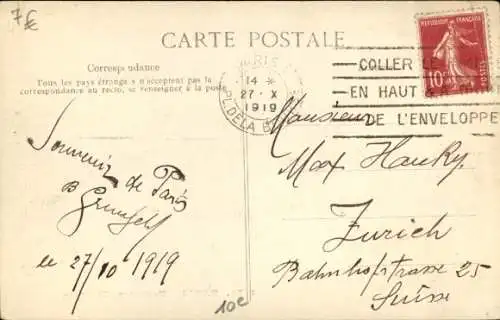 7€
CARTE POSTALE
Correspondance
Tous les pays étrangers n'acceptent pas la
correspondance au recto, se renseigner à la poste
REPUBLIQUE FRANÇAISE
10c
POSTES
PARIS
14 *
27 · X
1919
PL. DE LA B
COLLER LE
EN HAUT
DE L'ENVELOPPE
Souvenir
de Paris
le 27/10 1919
Monsieur
Max
Zurich
Bahnhofstrasse 25
Suisse
10€